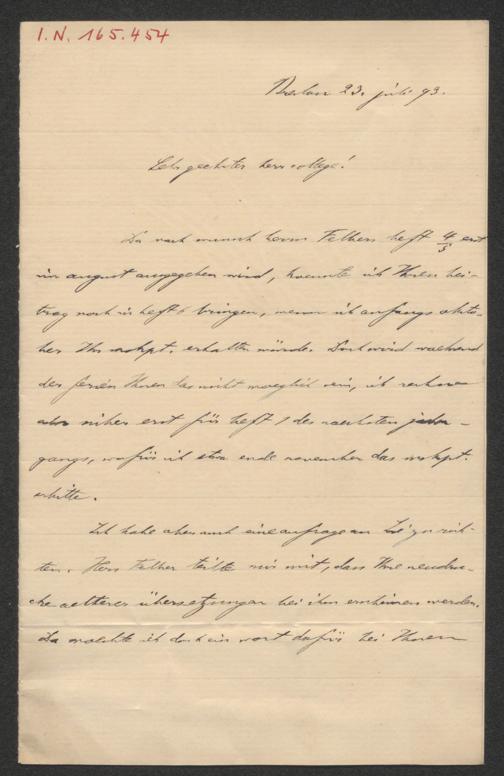 I.N. 165.454
Breslau 23. juli 93.
Sehr geehrter herr college!
Da nach wunsch herrn Felbers heft 4/5 erst
im august ausgegeben wird, koennte ich Ihren bei-
trag noch in heft 6 bringen, wenn ich anfangs okto-
ber Ihr mskpt. erhalten würde. Doch wird waehrend
der ferien Ihnen das nicht moeglich sein, ich rechne
also sicher erst für heft 1 des naechsten jahr-
gangs, wofür ich etwa ende november das mskpt.
erbitte.
Ich habe aber auch eine anfrage an Sie zu rich-
ten. Herr Felber teilte mir mit, dass Ihre neudru-
cke aelterer übersetzungen bei ihm erscheinen werden.
Da moechte ich doch ein wort dafür bei Ihnen